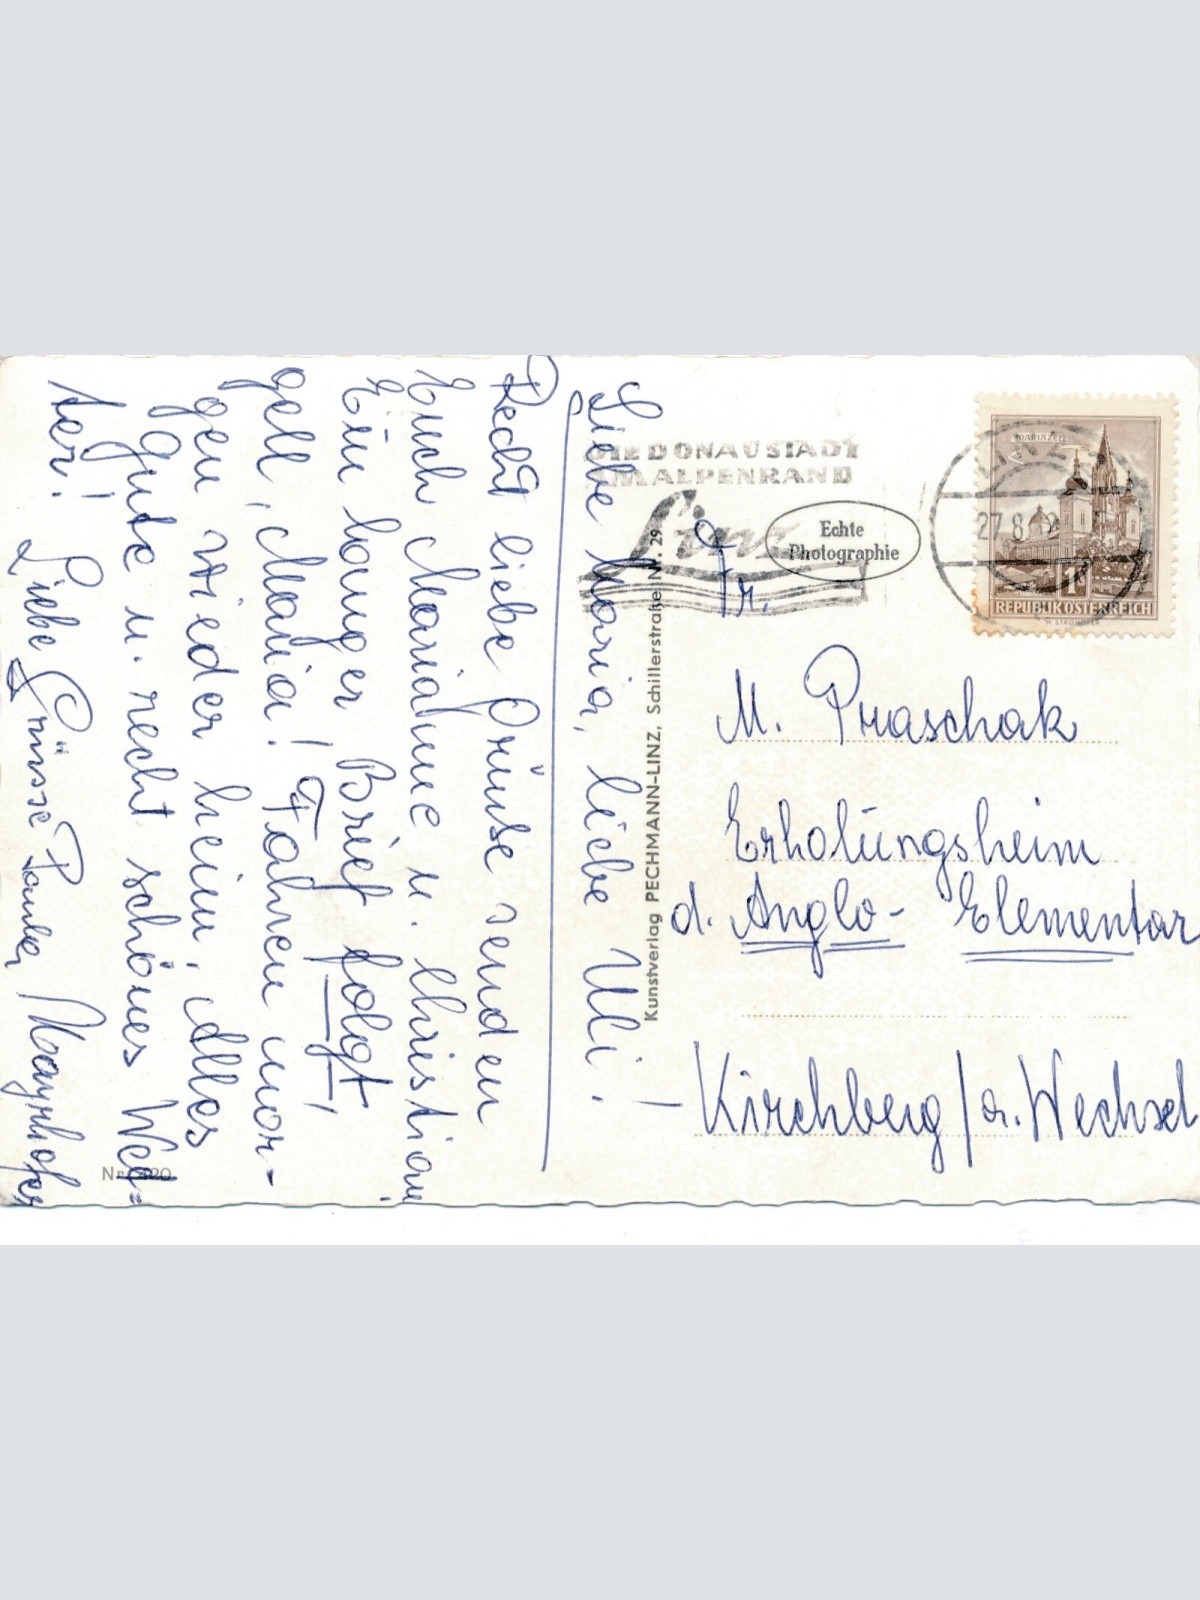 Liebe Maria, liebe Uli!
Recht liebe Grüße senden
Euch Marianne u. Christian
Ein langer Brief folgt,
gell, Maria! Fahren mor-
gen wieder heim, Alles
Gute u. recht schönes Wet-
ter!
Liebe Grüsse Mayrhofer
DIE DONAUSTADT
AM ALPENRAND
Linz
Echte
Photographie
LINZ
27.8.
MARIAZELL
1S
REPUBLIK ÖSTERREICH
Kunstverlag PECHMANN-LINZ, Schillerstraße Nr. 29
Fr.
M. Praschak
Erholungsheim
d. Anglo- Elementar
Kirchberg / a. Wechsel